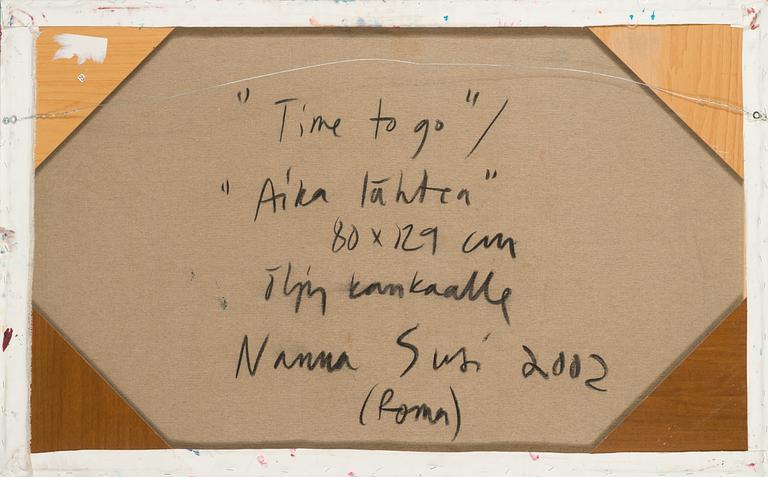 "Time to go" /
"Aika lähteä"
80 x 129 cm
öljy kankaalle
Nanna Susi 2002
(Roma)